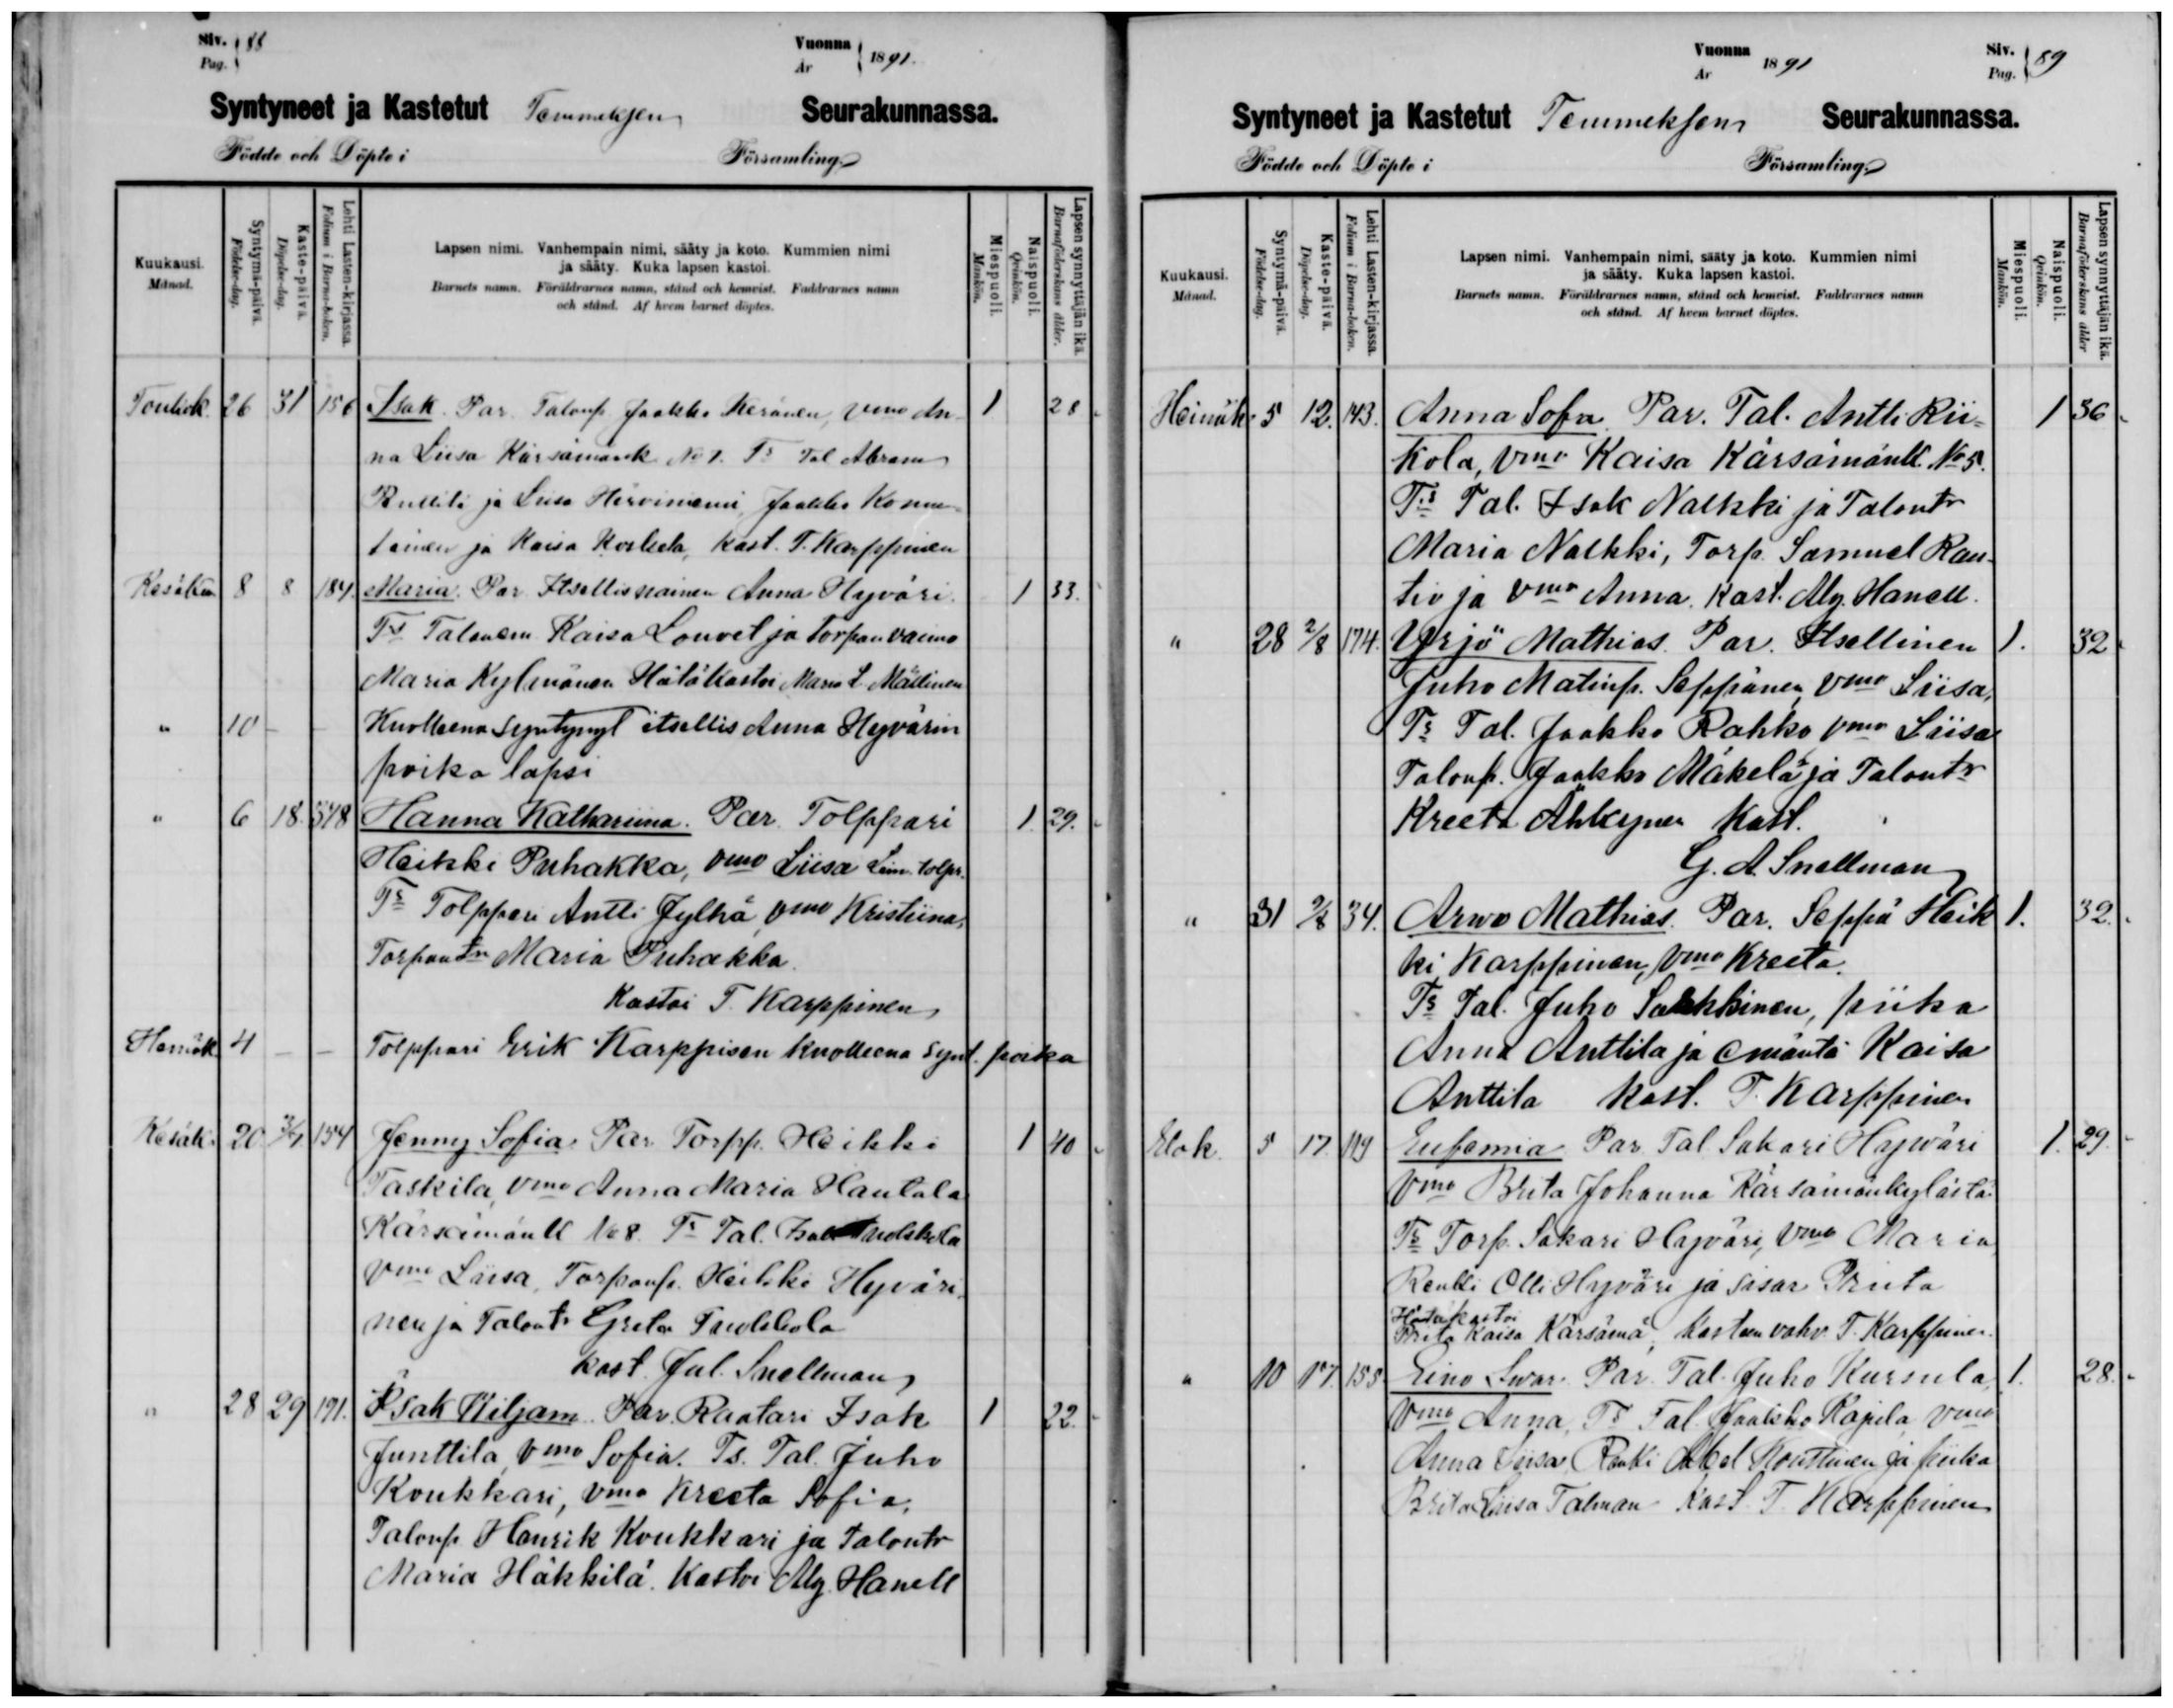 Siv. 88
Pag.
Vuonna 1891.
År
Syntyneet ja Kastetut Temmeksen Seurakunnassa.
Födde och Döpte i Församling
Kuukausi.
Månad.
Syntymä-päivä.
Födelse-dag.
Kaste-päivä.
Döpelse-dag.
Lehti Lasten-kirjassa.
Folium i Barna-boken.
Lapsen nimi. Vanhempain nimi, sääty ja koto. Kummien nimi
ja sääty. Kuka lapsen kastoi.
Barnets namn. Föräldrarnes namn, stånd och hemvist. Faddrarnes namn
och stånd. Af hvem barnet döptes.
Miespuoli.
Mankön.
Naispuoli.
Qvinkön.
Lapsen synnyttäjän ikä.
Barnaföderskans ålder.
Toukok. 26 31 156 Isak. Par. Talonp. Jaakko Keränen, vmo An-
1 28
na Liisa Kärsämänk No 7. Ts Tal Abram
Ruttila ja Liisa Hirviniemi, Jaakko
ja Kaisa kast. T. Karppinen
Kesäkuu 8 8 184. Maria. Par Itsellisnainen Anna Hyväri. 1 33.
Ts Talonem Kaisa Louvet ja torpanvaimo
Maria Kylmänen Hätäkastoi Maria L. Mällinen
" 10 - - Kuolleena syntynyt itsellis Anna Hyvärin
poika lapsi
" 6 18. 548 Hanna Katharina. Par. Tolppari 1. 29.
Heikki Puhakka, vmo Liisa Lim. tolpr.
Ts Tolppari Antti Jylhä, vmo Kristiina,
Torpantr Maria Puhakka.
Kastoi T. Karppinen
Heinäk. 4 - - Tolppari Erik Karppisen kuolleena synt. poika
Kesäk. 20 154 Jenny Sofia Par Torpp. Heikki 1 40
Taskila, vmo Anna Maria Hautala
Kärsämänkl No 8. Ts Tal.
vmo Liisa, Torpanp. Heikki Hyväri-
nen ja Talontr Greta Tuokkola
kast. Jul. Snellman
" 28 29 191. Isak Wiljam. Par. Raatari Isak 1 22.
Junttila, vmo Sofia. Ts. Tal. Juho
Koukkari, vmo Kreeta Sofia,
Talonp. Henrik Koukkari ja talontr
Maria Häkkilä. Kastoi Alg. Hanell
Vuonna 1891
År
Siv. 89
Pag.
Syntyneet ja Kastetut Temmeksen Seurakunnassa.
Födde och Döpte i Församling
Kuukausi.
Månad.
Syntymä-päivä.
Födelse-dag.
Kaste-päivä.
Döpelse-dag.
Lehti Lasten-kirjassa.
Folium i Barna-boken.
Lapsen nimi. Vanhempain nimi, sääty ja koto. Kummien nimi
ja sääty. Kuka lapsen kastoi.
Barnets namn. Föräldrarnes namn, stånd och hemvist. Faddrarnes namn
och stånd. Af hvem barnet döptes.
Miespuoli.
Mankön.
Naispuoli.
Qvinkön.
Lapsen synnyttäjän ikä.
Barnaföderskans ålder
Heinäk. 5 12. 143. Anna Sofia. Par. Tal. Antti Rii= 1 36
kola, vmo Kaisa Kärsämänkl. No 5.
Ts Tal. Isak Nalkki ja Talontr
Maria Nalkki, Torp. Samuel Rau-
tio ja vmo Anna. kast. Alg. Hanell.
" 28 2/8 174. Yrjö Mathias. Par. Itsellinen 1. 32
Juho Matinp. Seppänen, vmo Liisa,
Ts Tal. Jaakko Rahko vmo Liisa
Talonp. Jaakko Mäkelä ja Talontr
Kreeta Kast.
G. A. Snellman
" 31 34. Arwo Mathias. Par. Seppä Heik 1. 32.
ki Karppinen, vmo Kreeta.
Ts Tal. Juho Sarkkinen, piika
Anna Anttila ja emäntä Kaisa
Anttila kast. T. Karppinen
Elok. 5 17. 119 Eufemia Par. Tal. Sakari Hyväri 1. 29.
vmo Brita Johanna Kärsämänkylästä
Ts Torp. Sakari Hyväri, vmo Maria
Renki Olli Hyväri ja sisar Priita
Hätäkastoi
Brita Kaisa Kärsämä, kasteen vahv. T. Karppinen.
" 10 17. 155 Eino Iwar. Par. Tal. Juho Kursula, 1. 28.
vmo Anna, Ts Tal. Jaakko Kajula, vmo
Anna Liisa, Renki Abel Konttinen ja piika
Brita Liisa Talman kast. T. Karppinen